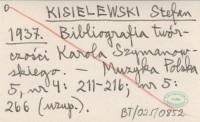 KISIELEWSKI Stefan
1937. Bibliografia twór-
czości Karola Szymanow-
skiego. — Muzyka Polska
5, nr 4: 211-216; nr 5:
266 (uzup.).
BT/0217/0952